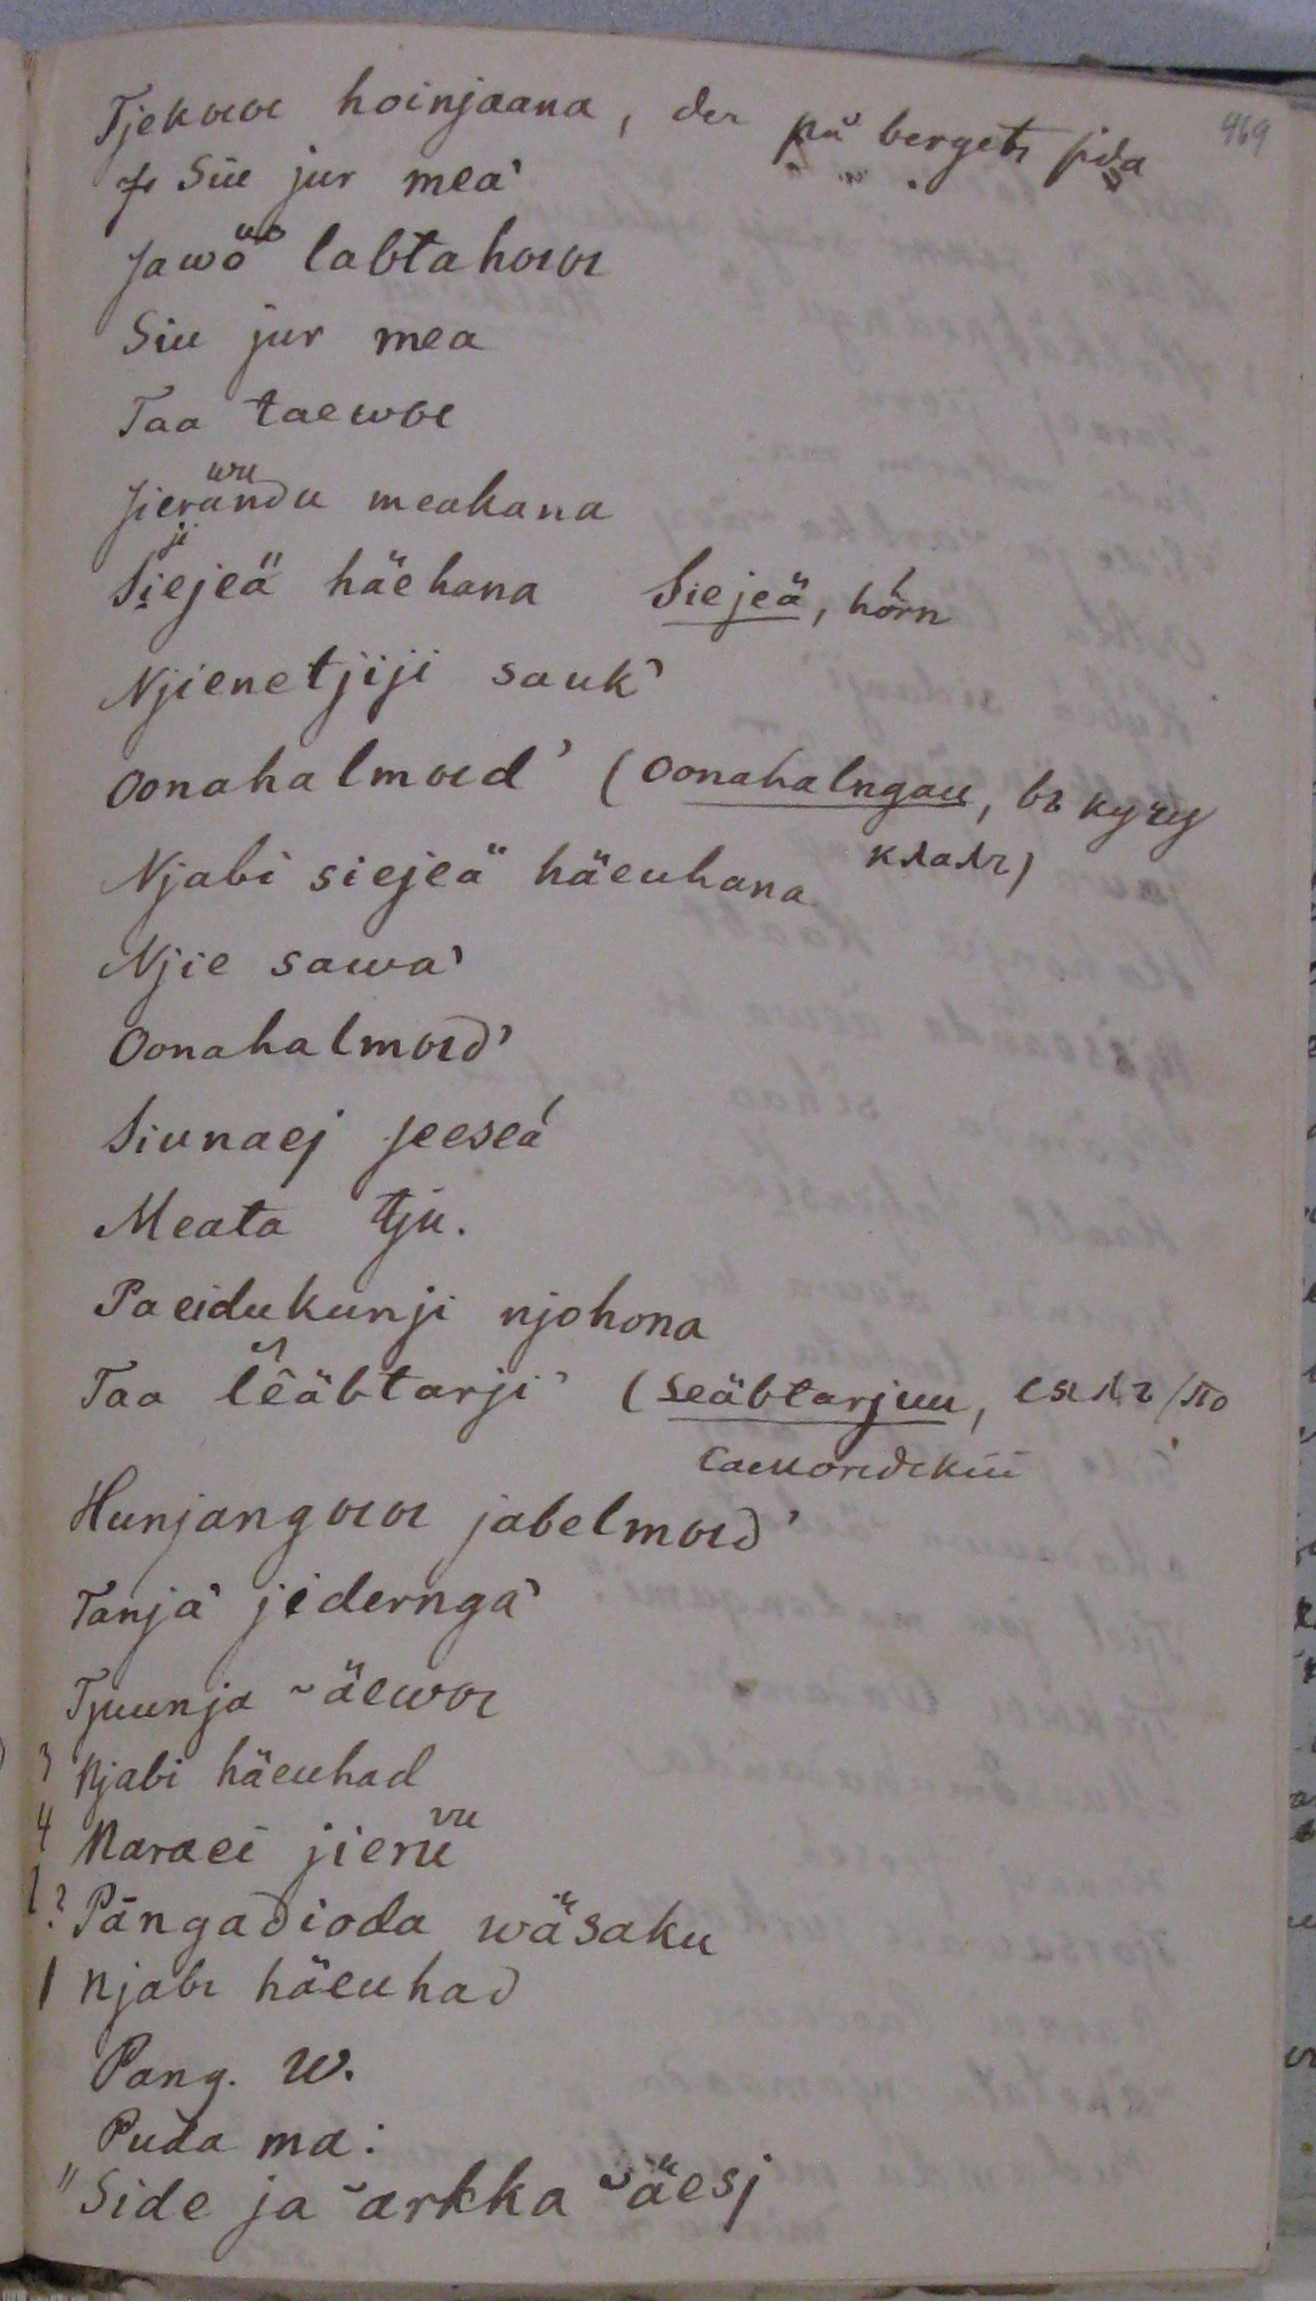 469
Tjekåcå hoinjaana, der på bergets sida
Siu jur mea'
Jawö labtahocoe
Siu jur mea
Taa taewoe
Jierundu meakana
Siejeä häehana Siejeä, hörn
Njienetjiji sauk'
Oonahalmoed' (Oonahalngau, въ кучу
клалъ)
Njabi siejeä häeuhana
Njie sawa'
Oonahalmoed'
Siunaej jeeseá
Meata tju.
Paeidukunji njohona
Taa seäbtarji' (seäbtarjuu, сялъ по
самоедскіи
Hunjangoeoe jabelmoed'
Tanja' jiderngа'
Tjuunja ˜äewoe
3 Njabi häeuhad
4 Naraei jieru
2? Pångadioda wäsaku
1 Njabi häeuhad
Pang. W.
Puda ma:
"Side ja ˜arkka ˜äesj